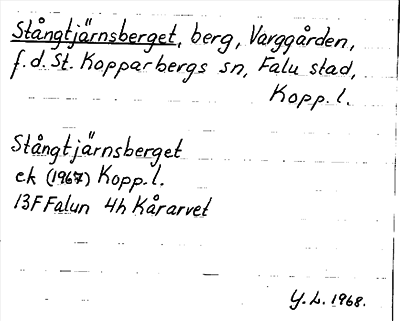 Stångtjärnsberget, berg, Varggården,
f.d. St. Kopparbergs sn, Falu stad,
Kopp.l.
Stångtjärnsberget
ek (1967) Kopp.l.
13F Falun 4h Kårarvet
Y.L. 1968.